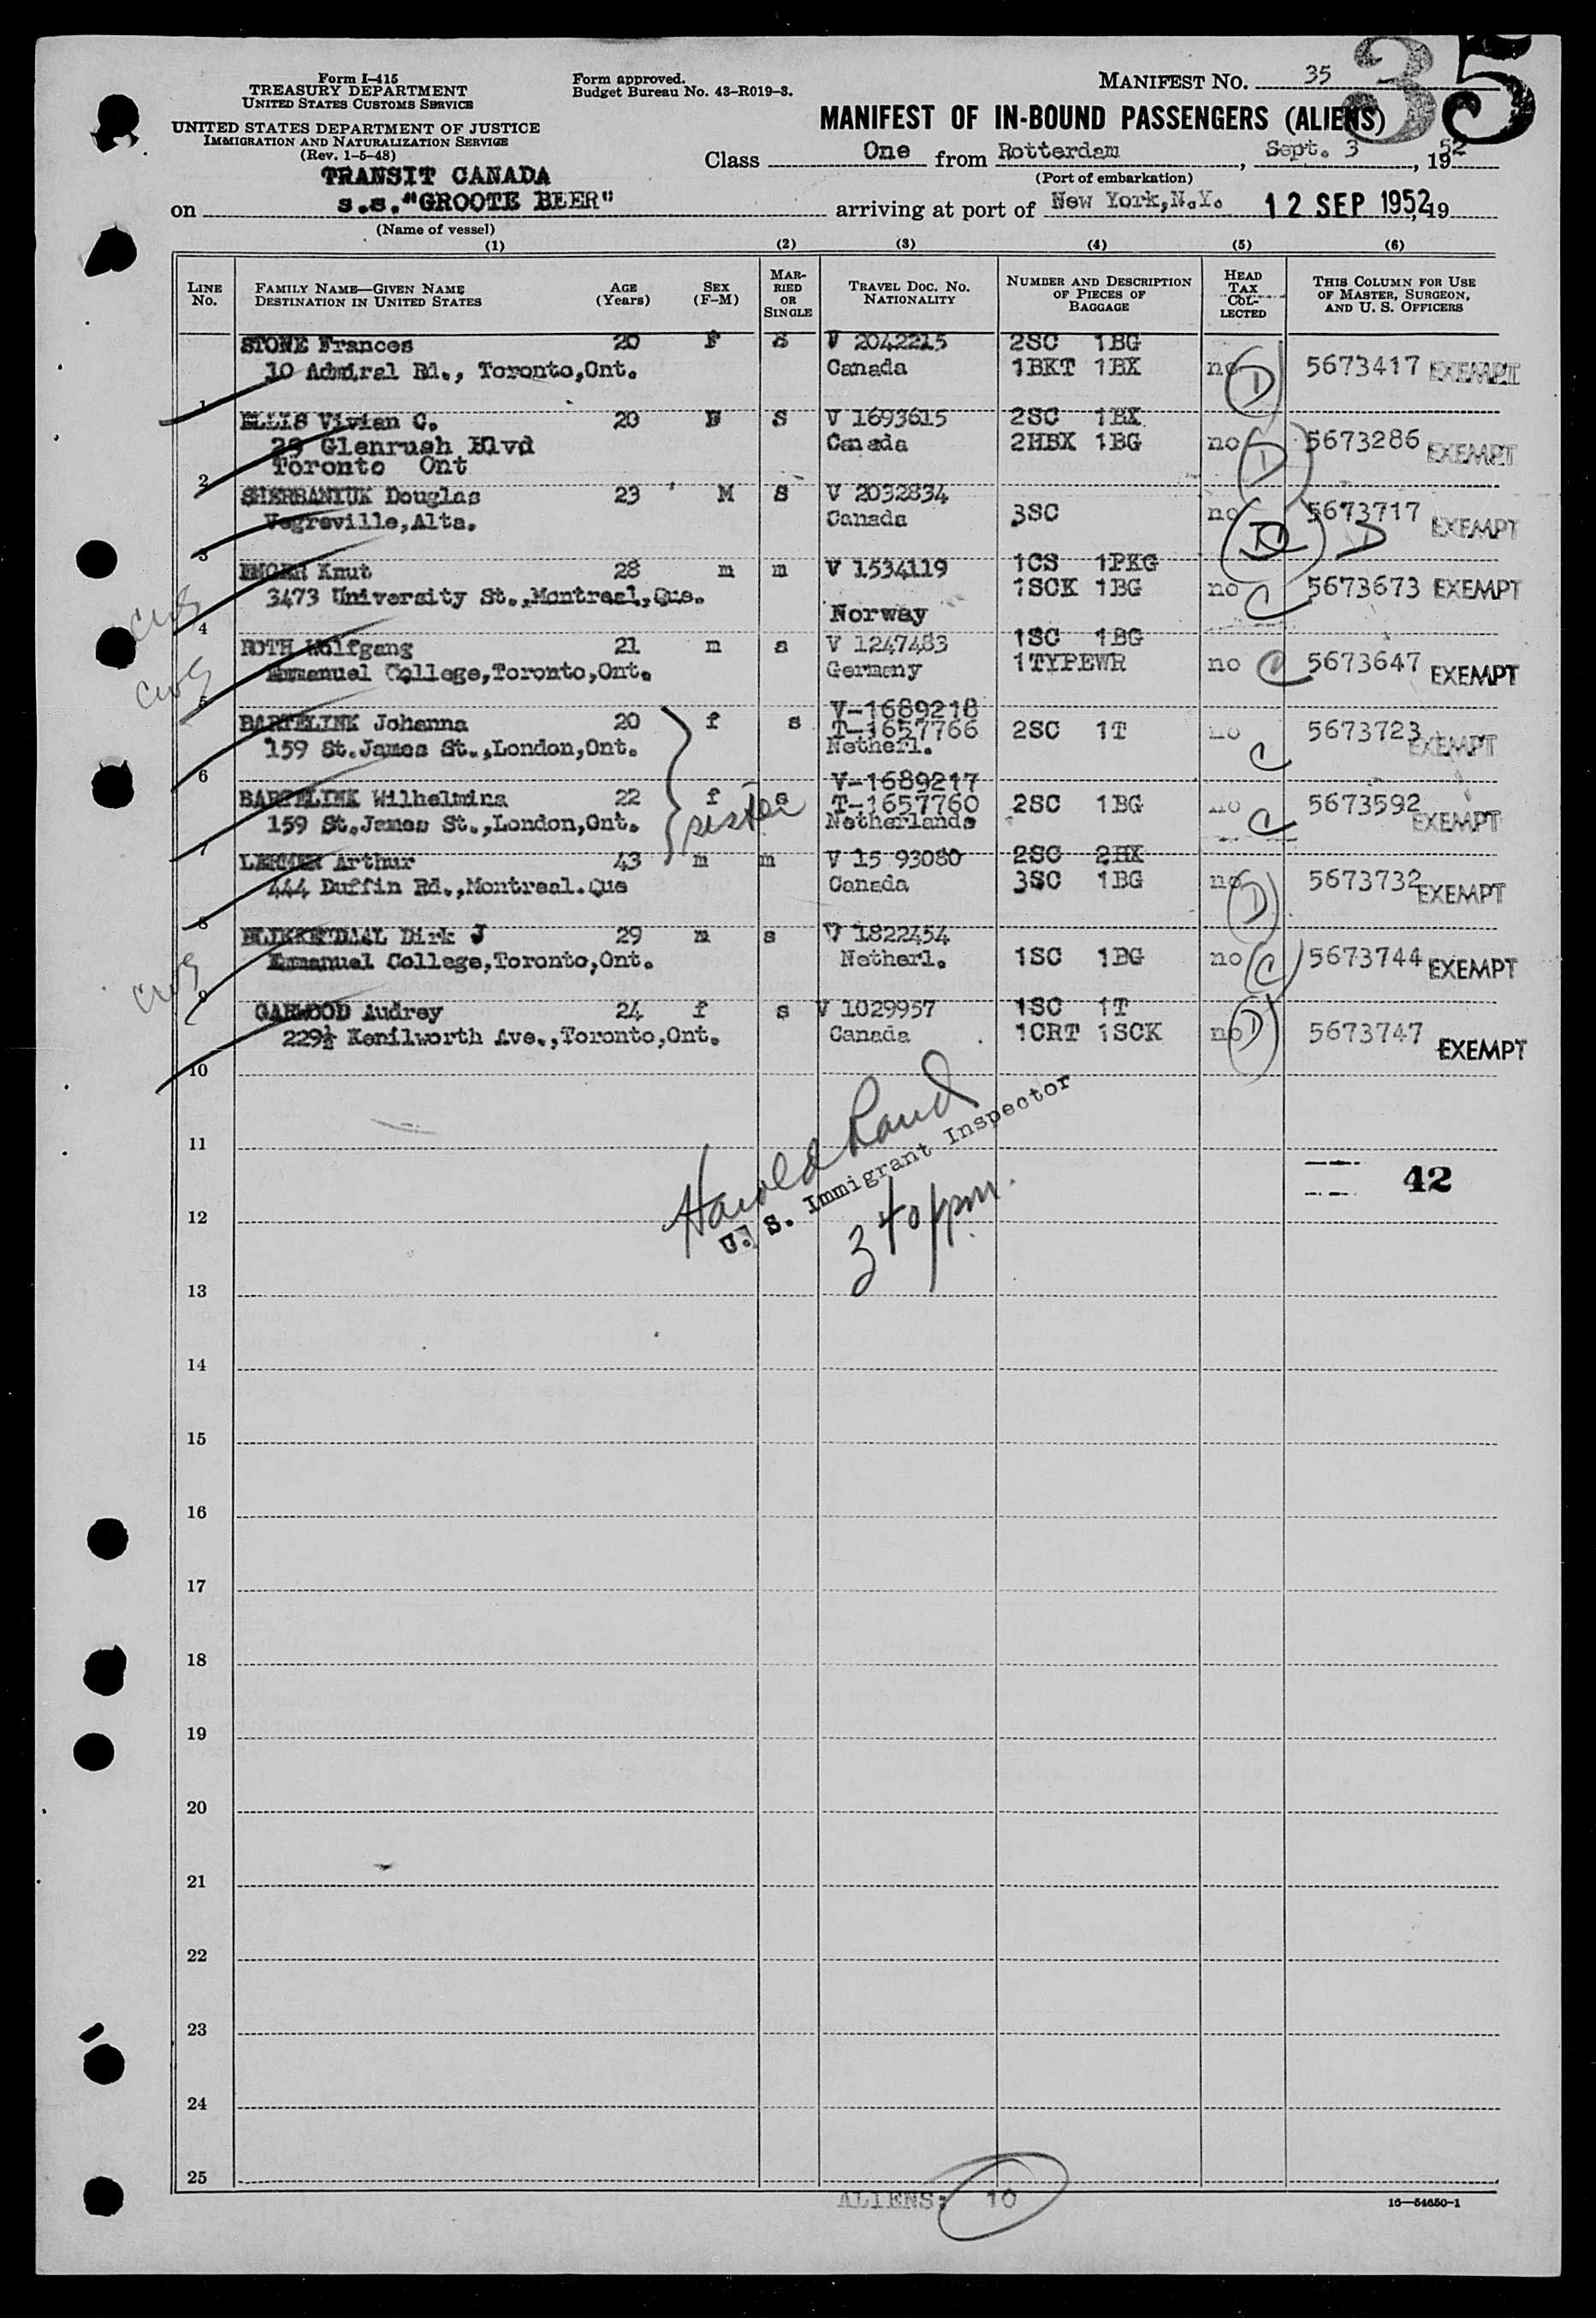 Form I-415
TREASURY DEPARTMENT
UNITED STATES CUSTOMS SERVICE
UNITED STATES DEPARTMENT OF JUSTICE
IMMIGRATION AND NATURALIZATION SERVICE
(Rev. 1-5-48)
Form approved.
Budget Bureau No. 43-R019-3.
MANIFEST NO. 35
35
MANIFEST OF IN-BOUND PASSENGERS (ALIENS)
Class One from Rotterdam, Sept. 3, 1952
(Port of embarkation)
TRANSIT CANADA
on s.s."GROOTE BEER" arriving at port of New York,N.Y. 12 SEP 1952, 19
(Name of vessel)
(1) (2) (3) (4) (5) (6)
LINE No. FAMILY NAME—GIVEN NAME DESTINATION IN UNITED STATES AGE (Years) SEX (F-M) MARRIED OR SINGLE TRAVEL DOC. NO. NATIONALITY NUMBER AND DESCRIPTION OF PIECES OF BAGGAGE HEAD TAX COLLECTED THIS COLUMN FOR USE OF MASTER, SURGEON, AND U. S. OFFICERS
STONE Frances 20 F S V 2042215 2SC 1BG
10 Admiral Rd., Toronto,Ont. Canada 1BKT 1BX no D 5673417 EXEMPT
1
ELLIS Vivian C. 20 F S V 1693615 2SC 1BX
29 Glenrush Blvd Canada 2HBX 1BG no D 5673286 EXEMPT
Toronto Ont
2
SHERBANIUK Douglas 23 M S V 2032834
Vegreville,Alta. Canada 3SC no D D 5673717 EXEMPT
3
ENGER Knut 28 m m V 1534119 1CS 1PKG
3473 University St.,Montreal,Que. 1SCK 1BG no C 5673673 EXEMPT
Norway
4
ROTH Wolfgang 21 m s V 1247483 1SC 1BG
Emmanuel College,Toronto,Ont. Germany 1TYPEWR no C 5673647 EXEMPT
5
V-1689218
BARTELINK Johanna 20 f s T-1657766 2SC 1T no C 5673723 EXEMPT
159 St.James St.,London,Ont. Netherl.
6
V-1689217
BARTELINK Wilhelmina 22 f s T-1657760 2SC 1BG no C 5673592 EXEMPT
159 St.James St.,London,Ont. sister Netherlands
7
LERMER Arthur 43 m m V 15 93080 2SC 2HX
444 Duffin Rd.,Montreal.Que Canada 3SC 1BG no D 5673732 EXEMPT
8
BLIKKENDAAL Dirk J 29 m s V 1822454
Emmanuel College,Toronto,Ont. Netherl. 1SC 1BG no C 5673744 EXEMPT
9
GARWOOD Audrey 24 f s V 1029957 1SC 1T
229½ Kenilworth Ave.,Toronto,Ont. Canada 1CRT 1SCK no D 5673747 EXEMPT
10
11
Harold Rand
U. S. Immigrant Inspector
42
12
3 40 pm.
13
14
15
16
17
18
19
20
21
22
23
24
25
ALIENS: 10
16—54650-1